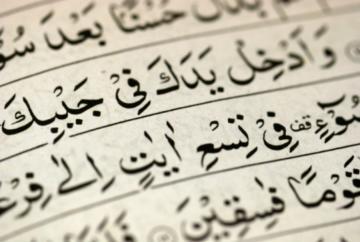 بَدَّلَ حُسْنًۢا بَعْدَ سُوْٓ
وَاَدْخِلْ يَدَكَ فِيْ جَيْبِكَ
سُوْٓءٍ قف فِيْ تِسْعِ اٰيٰتٍ اِلٰى فِرْعَ
قَوْمًا فٰسِقِيْنَ